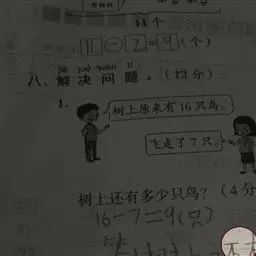 11个
11-7=9(个)
jiě jué wèn tí
八、解决问题。(12分)
1.
树上原来有16只鸟。
飞走了7只。
树上还有多少只鸟?(4分
16-7=9(只)